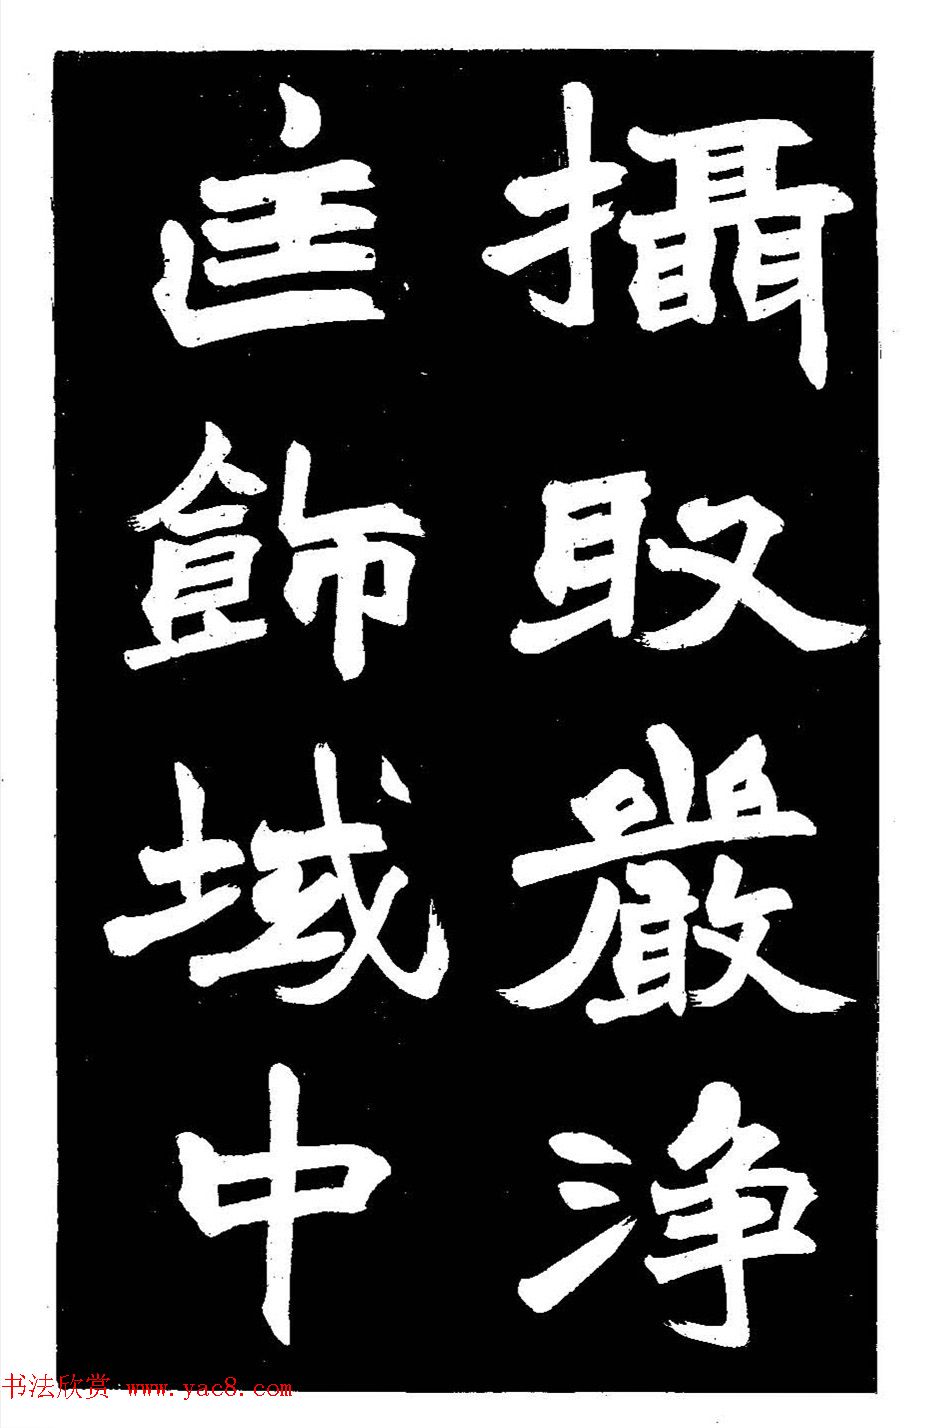 攝取嚴淨
匡飾域中
书法欣赏 www.yac8.com